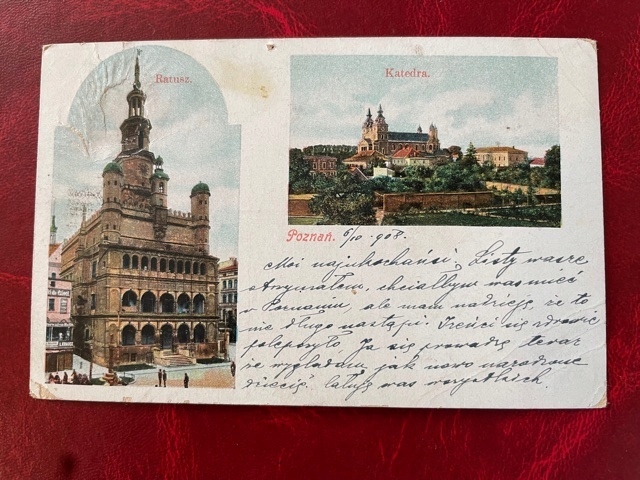 Ratusz.
Katedra.
Poznań. 6/10 908.
Moi najukochańsi. Listy wasze
otrzymałem, chciałbym was mieć
w Poznaniu, ale mam nadzieję, że to
nie długo nastąpi. się zdrowie
polepszyło. Ja się teraz
że wyglądam jak nowo narodzone
dziecię. Całuję was wszystkich.